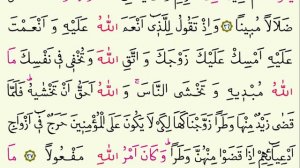 ضَلَالًا مُبِينًا ۝٣٦ وَاِذْ تَقُولُ لِلَّذِٓي اَنْعَمَ اللّٰهُ عَلَيْهِ وَ اَنْعَمْتَ
عَلَيْهِ اَمْسِكْ عَلَيْكَ زَوْجَكَ وَ اتَّقِ اللّٰهَ وَ تُخْفِي فِي نَفْسِكَ مَا
اللّٰهُ مُبْدِيهِ وَ تَخْشَى النَّاسَ وَ اللّٰهُ اَحَقُّ اَنْ تَخْشٰيهُ فَلَمَّا
قَضٰى زَيْدٌ مِنْهَا وَطَرًا زَوَّجْنَاكَهَا لِكَيْ لَا يَكُونَ عَلَى الْمُؤْمِنِينَ حَرَجٌ فِٓي اَزْوَاجِ
اَدْعِيَٓائِهِمْ اِذَا قَضَوْا مِنْهُنَّ وَطَرًا وَ كَانَ اَمْرُ اللّٰهِ مَفْعُولًا ۝٣٧ مَا